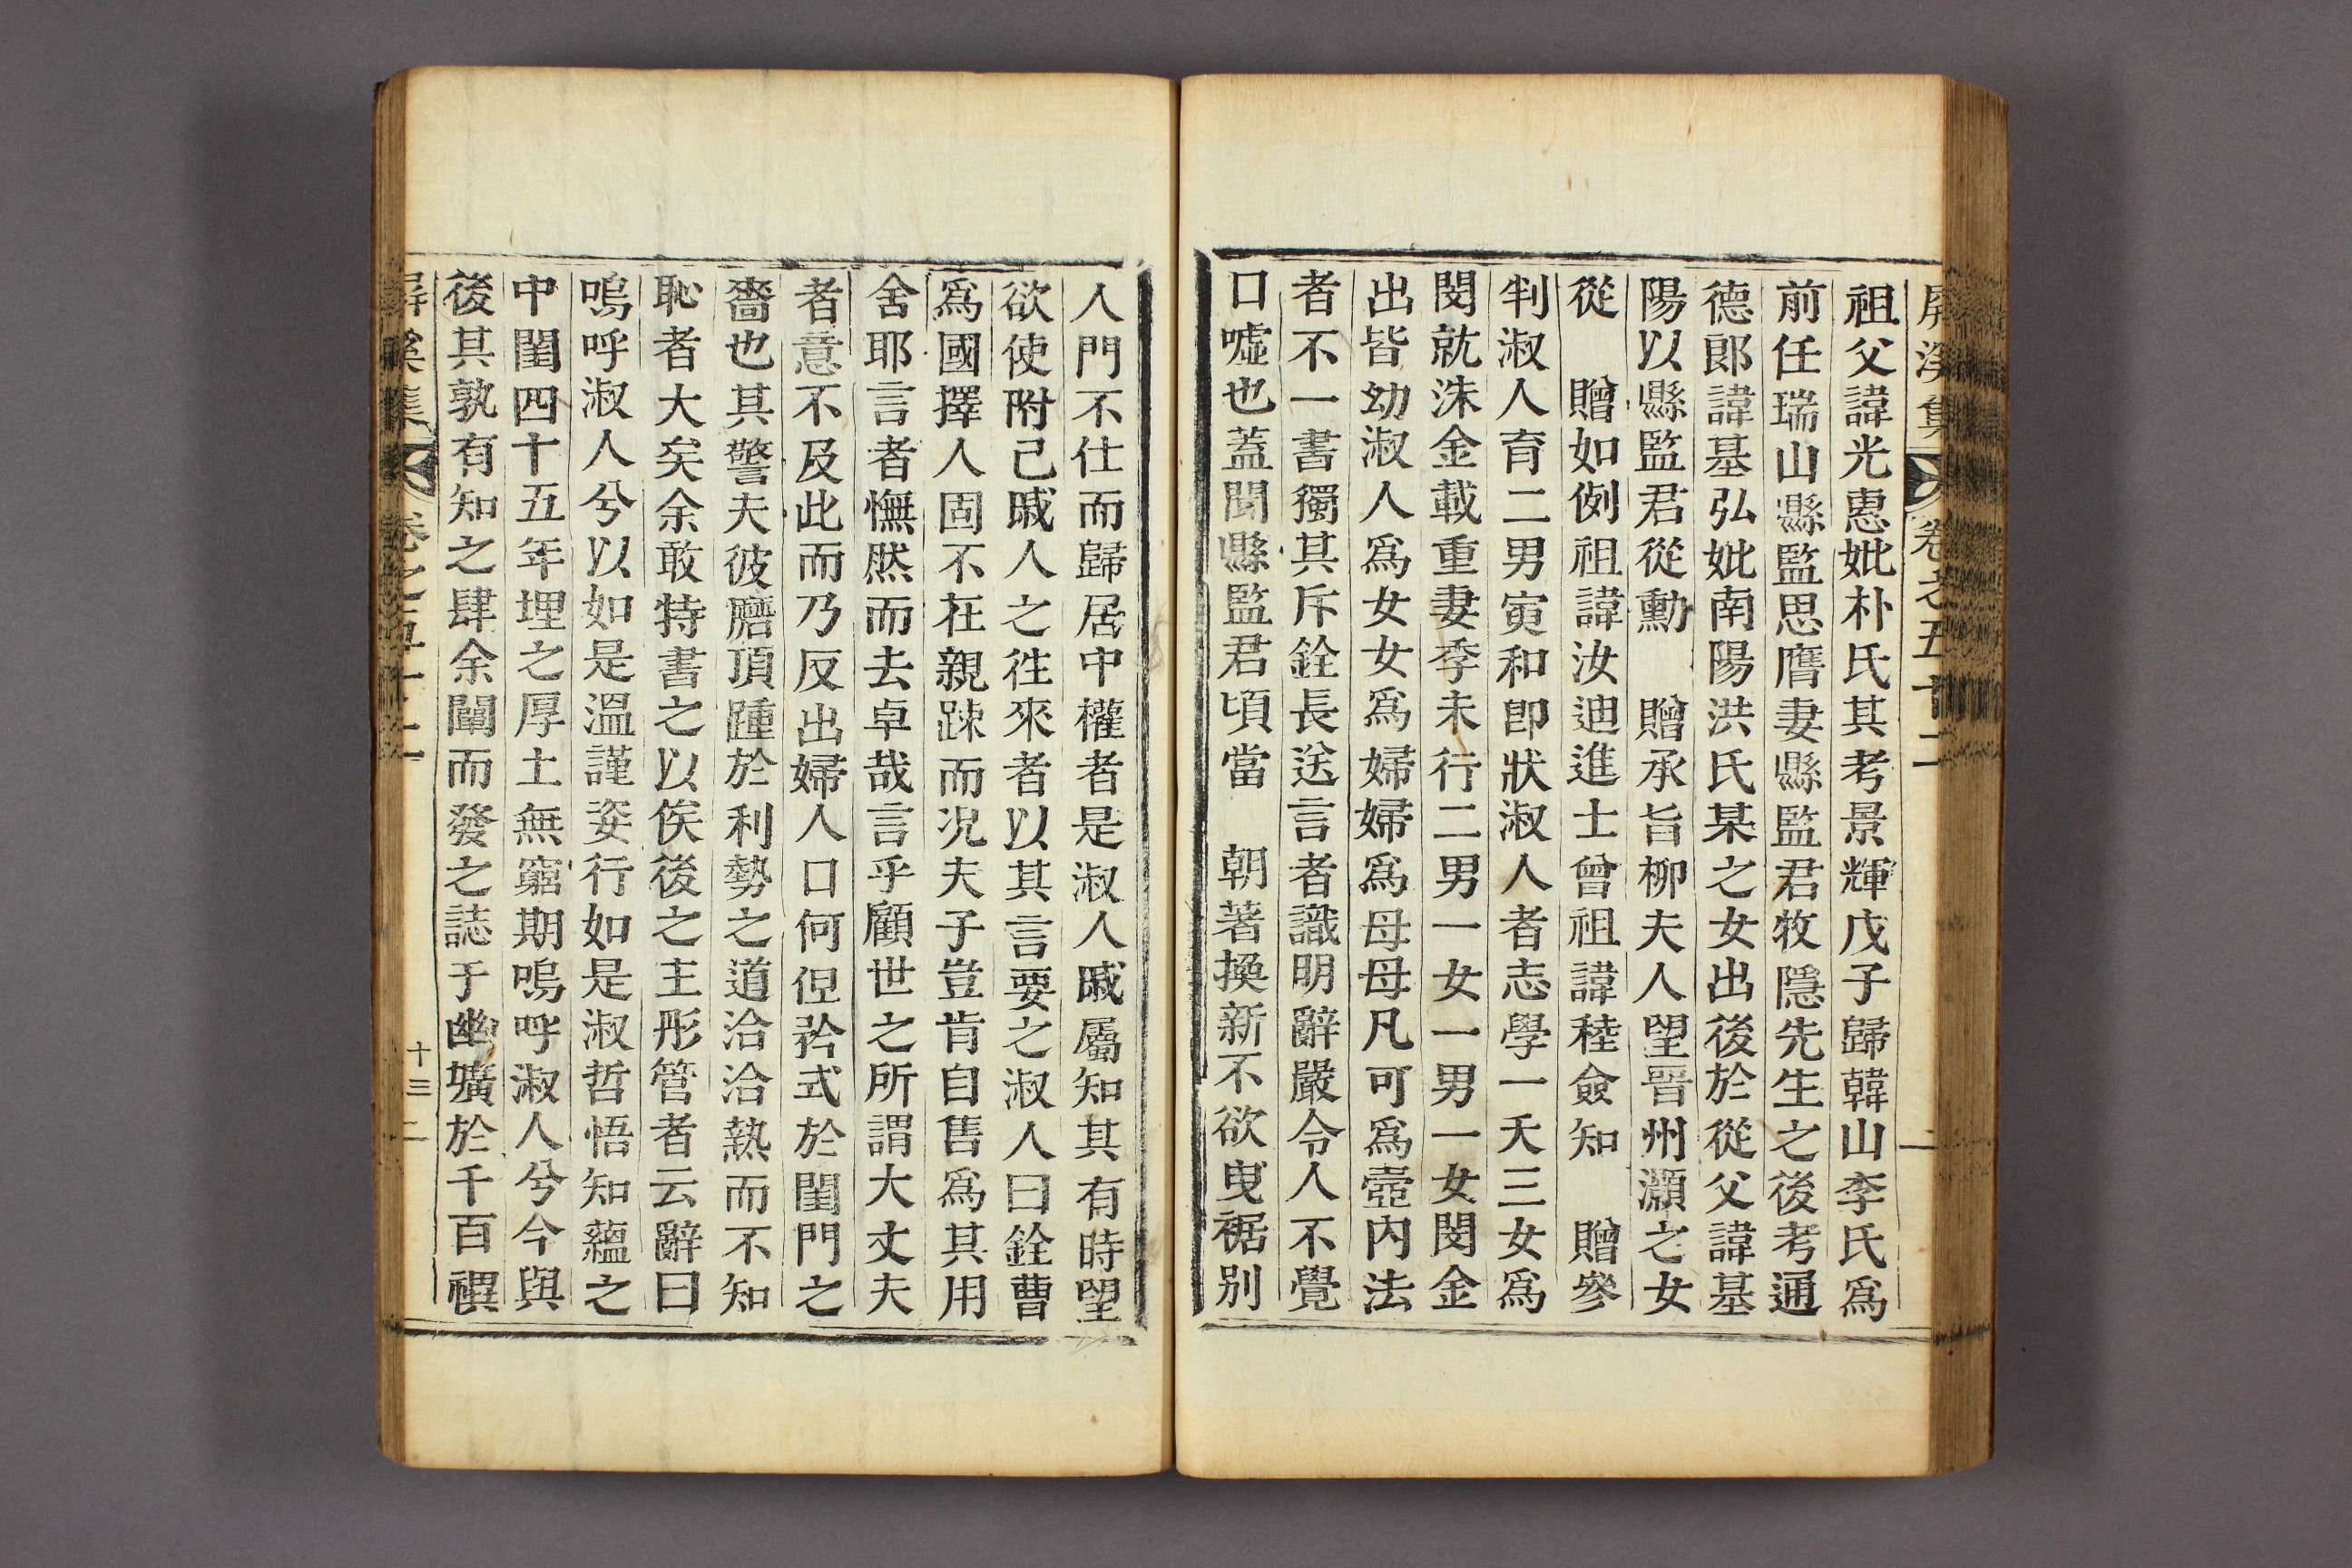 屛溪集 卷之五十二
祖父諱光惠妣朴氏其考景輝戊子歸韓山李氏爲
前任瑞山縣監思膺妻縣監君牧隱先生之後考通
德郎諱基弘妣南陽洪氏某之女出後於從父諱基
陽以縣監君從勳 贈承旨柳夫人望晉州灝之女
從 贈如例祖諱汝迪進士曾祖諱稑僉知 贈參
判淑人育二男寅和卽狀淑人者志學一夭三女爲
閔就洙金載重妻季未行二男一女一男一女閔金
出皆幼淑人爲女女爲婦婦爲母母凡可爲壼內法
者不一書獨其斥銓長送言者識明辭嚴令人不覺
口噓也蓋聞縣監君頃當 朝著換新不欲曳裾别
人門不仕而歸居中權者是淑人戚屬知其有時望
欲使附己戚人之徃來者以其言要之淑人曰銓曹
爲國擇人固不在親踈而况夫子豈肯自售爲其用
舍耶言者憮然而去卓哉言乎顧世之所謂大丈夫
者意不及此而乃反出婦人口何但矜式於閨門之
嗇也其警夫彼磨頂踵於利勢之道洽洽熱而不知
恥者大矣余敢特書之以俟後之主彤管者云辭曰
嗚呼淑人兮以如是溫謹姿行如是淑哲悟知蘊之
中閨四十五年埋之厚土無窮期嗚呼淑人兮今與
後其孰有知之肆余闡而發之誌于幽壙於千百禩
屛溪集 卷之五十二